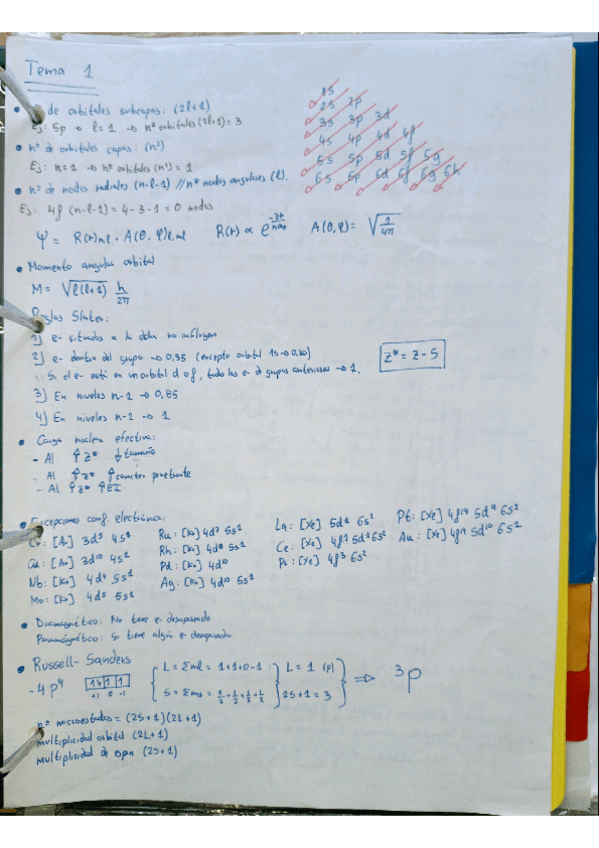 Tema 1
de orbitales subcapas: (2l+1)
Ej: 5p → l=1 → nº orbitales (2l+1)=3
nº de orbitales capas: (n²)
Ej: n=1 → nº orbitales (n²) = 1
nº de nodos radiales (n-l-1) // nº nodos angulares (l).
Ej: 4f (n-l-1) = 4-3-1 = 0 nodos
1s
2s 2p
3s 3p 3d
4s 4p 4d 4f
5s 5p 5d 5f 5g
6s 6p 6d 6f 6g 6h
Ψ = R(r)nl · A(θ,φ)l,ml R(r) ∝ e^(-Zr/na₀) A(θ,φ) = √(1/4π)
Momento angular orbital
M = √(l(l+1)) h/2π
Reglas Slater:
1) e- situados a la dcha no influyen
2) e- dentro del grupo → 0,35 (excepto orbital 1s → 0,30)
Si el e- está en un orbital d o f, todos los e- de grupos anteriores → 1.
Z* = Z - S
3) En niveles n-1 → 0,85
4) En niveles n-2 → 1
Carga nuclear efectiva:
- Al ↑Z* ↓tamaño
- Al ↑Z* ↑caracter penetrante
- Al ↑Z* ↑EI
Excepciones conf. electrónica:
Cr: [Ar] 3d⁵ 4s¹
Cu: [Ar] 3d¹⁰ 4s¹
Nb: [Kr] 4d⁴ 5s¹
Mo: [Kr] 4d⁵ 5s¹
Ru: [Kr] 4d⁷ 5s¹
Rh: [Kr] 4d⁸ 5s¹
Pd: [Kr] 4d¹⁰
Ag: [Kr] 4d¹⁰ 5s¹
La: [Xe] 5d¹ 6s²
Ce: [Xe] 4f¹ 5d¹ 6s²
Pr: [Xe] 4f³ 6s²
Pt: [Xe] 4f¹⁴ 5d⁹ 6s¹
Au: [Xe] 4f¹⁴ 5d¹⁰ 6s¹
Diamagnético: No tiene e- desapareado
Paramagnético: Si tiene algún e- desapareado
Russell-Sanders
- 4p⁴ +1 0 -1 L = Σml = 1+1+0-1 L = 1 (P) ⇒ ³P
S = Σms = 1/2+1/2+1/2+1/2 2S+1 = 3
nº microestados = (2S+1)(2L+1)
multiplicidad orbital (2L+1)
multiplicidad de spin (2S+1)